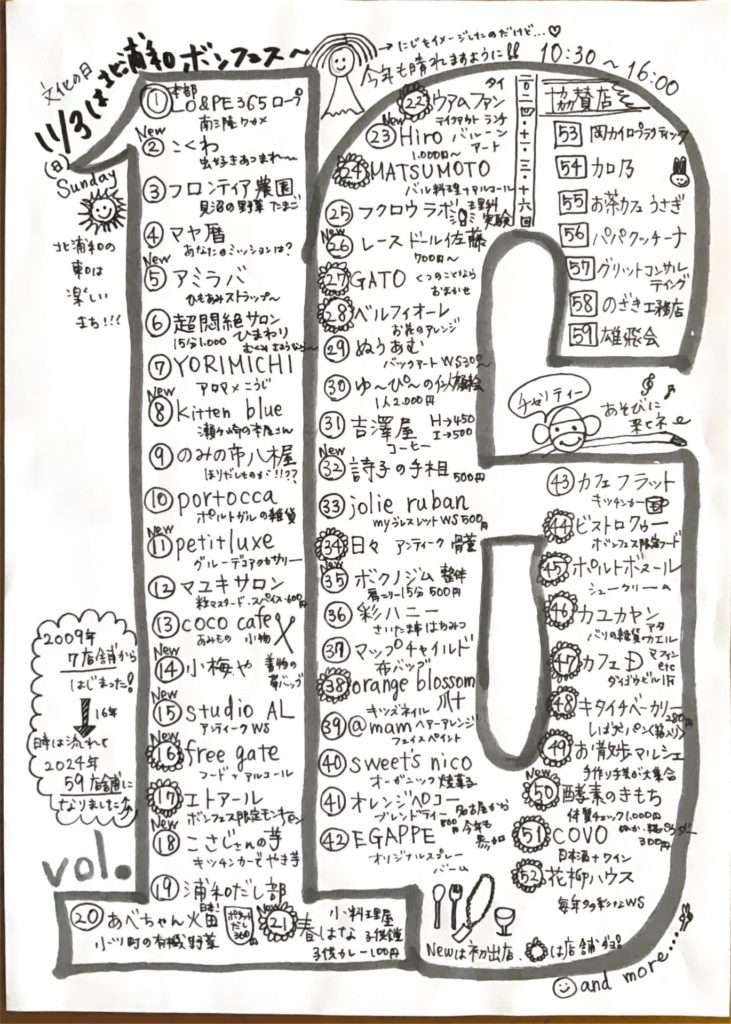 文化の日
11/3は北浦和ボンフェス〜
(日)
Sunday
→にじをイメージしたのだけど…♡
今年も晴れますように!!
10:30〜16:00
北浦和の
東口は
楽しい
まち!!!
本部
① LO&PE365 ロープ
南三陸ワカメ
New
② こくわ
虫好きあつまれ〜
③ フロンティア農園
見沼の野菜 たまご
④ マヤ暦
あなたのミッションは?
New
⑤ アミラバ
ひもあみストラップ〜
⑥ 超悶絶サロン
ひまわり
15分1,000
⑦ YORIMICHI
アロマ×こうじ
New
⑧ kitten blue
瀬ヶ崎の本屋さん
⑨ のみの市八木屋
ほりだしものが!!??
⑩ portocca
ポルトガルの雑貨
New
⑪ petitluxe
グルーデコアクセサリー
⑫ マユキサロン
粒マスタード・スパイス・600円
⑬ coco cafe
あみもの 小物
New
⑭ 小梅や
着物の
布バッグ
New
⑮ studio AL
アンティークWS
New
⑯ free gate
フード・アルコール
⑰ エトアール
ボンフェス限定モンキロール
New
⑱ こさじさんの芋
キッチンカーでやき芋
⑲ 浦和だし部
⑳ あべちゃん火田
小ツ町の有機野菜
日本!
ポケットだし
360円
㉑ 春はな
小料理屋
子供食堂
子供カレー100円
㉒ ウアムファン
タイ
テイクアウトランチ
㉓ Hiro バルーン
アート
1,000円〜
㉔ MATSUMOTO
バル料理+アルコール
㉕ フクロウラボ
理科
実験
New
㉖ レースドール佐藤
700円〜
㉗ GATO くつのことなら
おまかせ
㉘ ベルフィオーレ
お花のアレンジ
㉙ ぬうあむ
バックアートWS300〜
㉚ ゆ〜ぴ〜の似顔絵
1人2,000円
㉛ 吉澤屋 H→450
I→500
コーヒー
New
㉜ 詩子の手相
500円
㉝ jolie ruban
myブレスレットWS500円
㉞ 日々 アンティーク 骨董
New
㉟ ボクノジム 整体
肩コリ15分500円
㊱ 彩ハニー
さいたま市はちみつ
㊲ マップチャイルド
布バッグ
㊳ orange blossom
キッズネイル
㊴ @mam ヘアーアレンジ
フェイスペイント
㊵ sweet's nico
オーガニック焼菓子
㊶ オレンジペコー
ブレンドティー
名古屋から
今年も
参加
㊷ EGAPPE
オリジナルスプレー
バーム
二〇二四・十一・三・十・十六・回
協賛店
53 岡カイロプラクティック
54 加乃
55 お茶カフェうさぎ
56 パパクッチーナ
57 グリットコンサル
ティング
58 のざき工務店
59 雄飛会
チゼリティー
あそびに
来てネ
㊸ カフェフラット
キッチンカー
㊹ ビストロクゥー
ボンフェス限定フード
㊺ ポルトボヌール
シュークリームの
㊻ カユカヤン
バリの雑貨
㊼ カフェD マフィン
etc
ダイゴウビル1F
㊽ キタイチベーカリー
280円
しば犬パン(箱入り)
㊾ お散歩マルシェ
手作り作家が大集合
New
㊿ 酵素のきもち
体質チェック1,000円
51 COVO
300円
日本酒+ワイン
52 花柳ハウス
毎年多彩なWS
2009年
7店舗から
はじまった!
16年
時は流れて
2024年
59店舗に
なりました
vol.
16
Newは初出店、
は店舗
and more...